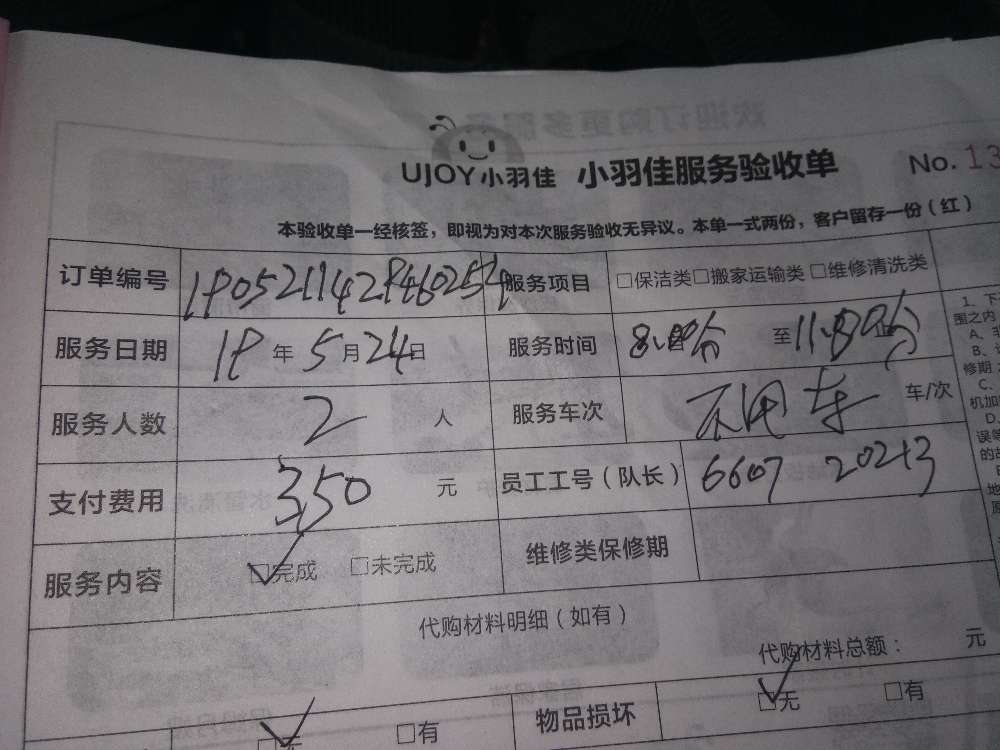 UJOY小羽佳 小羽佳服务验收单 No. 13
本验收单一经核签，即视为对本次服务验收无异议。本单一式两份，客户留存一份（红）
订单编号 服务项目 □保洁类□搬家运输类 □维修清洗类
服务日期 18 年 5 月 24 日 服务时间 至
服务人数 2 人 服务车次 不用车 车/次
支付费用 350 元 员工工号（队长） 6607 20213
服务内容 □完成 □未完成 维修类保修期
代购材料明细（如有）
代购材料总额： 元
□无 □有 物品损坏 □无 □有
1. 下
围之内
A、非
B、
修期
C、
机加
D、
误等
的故
地